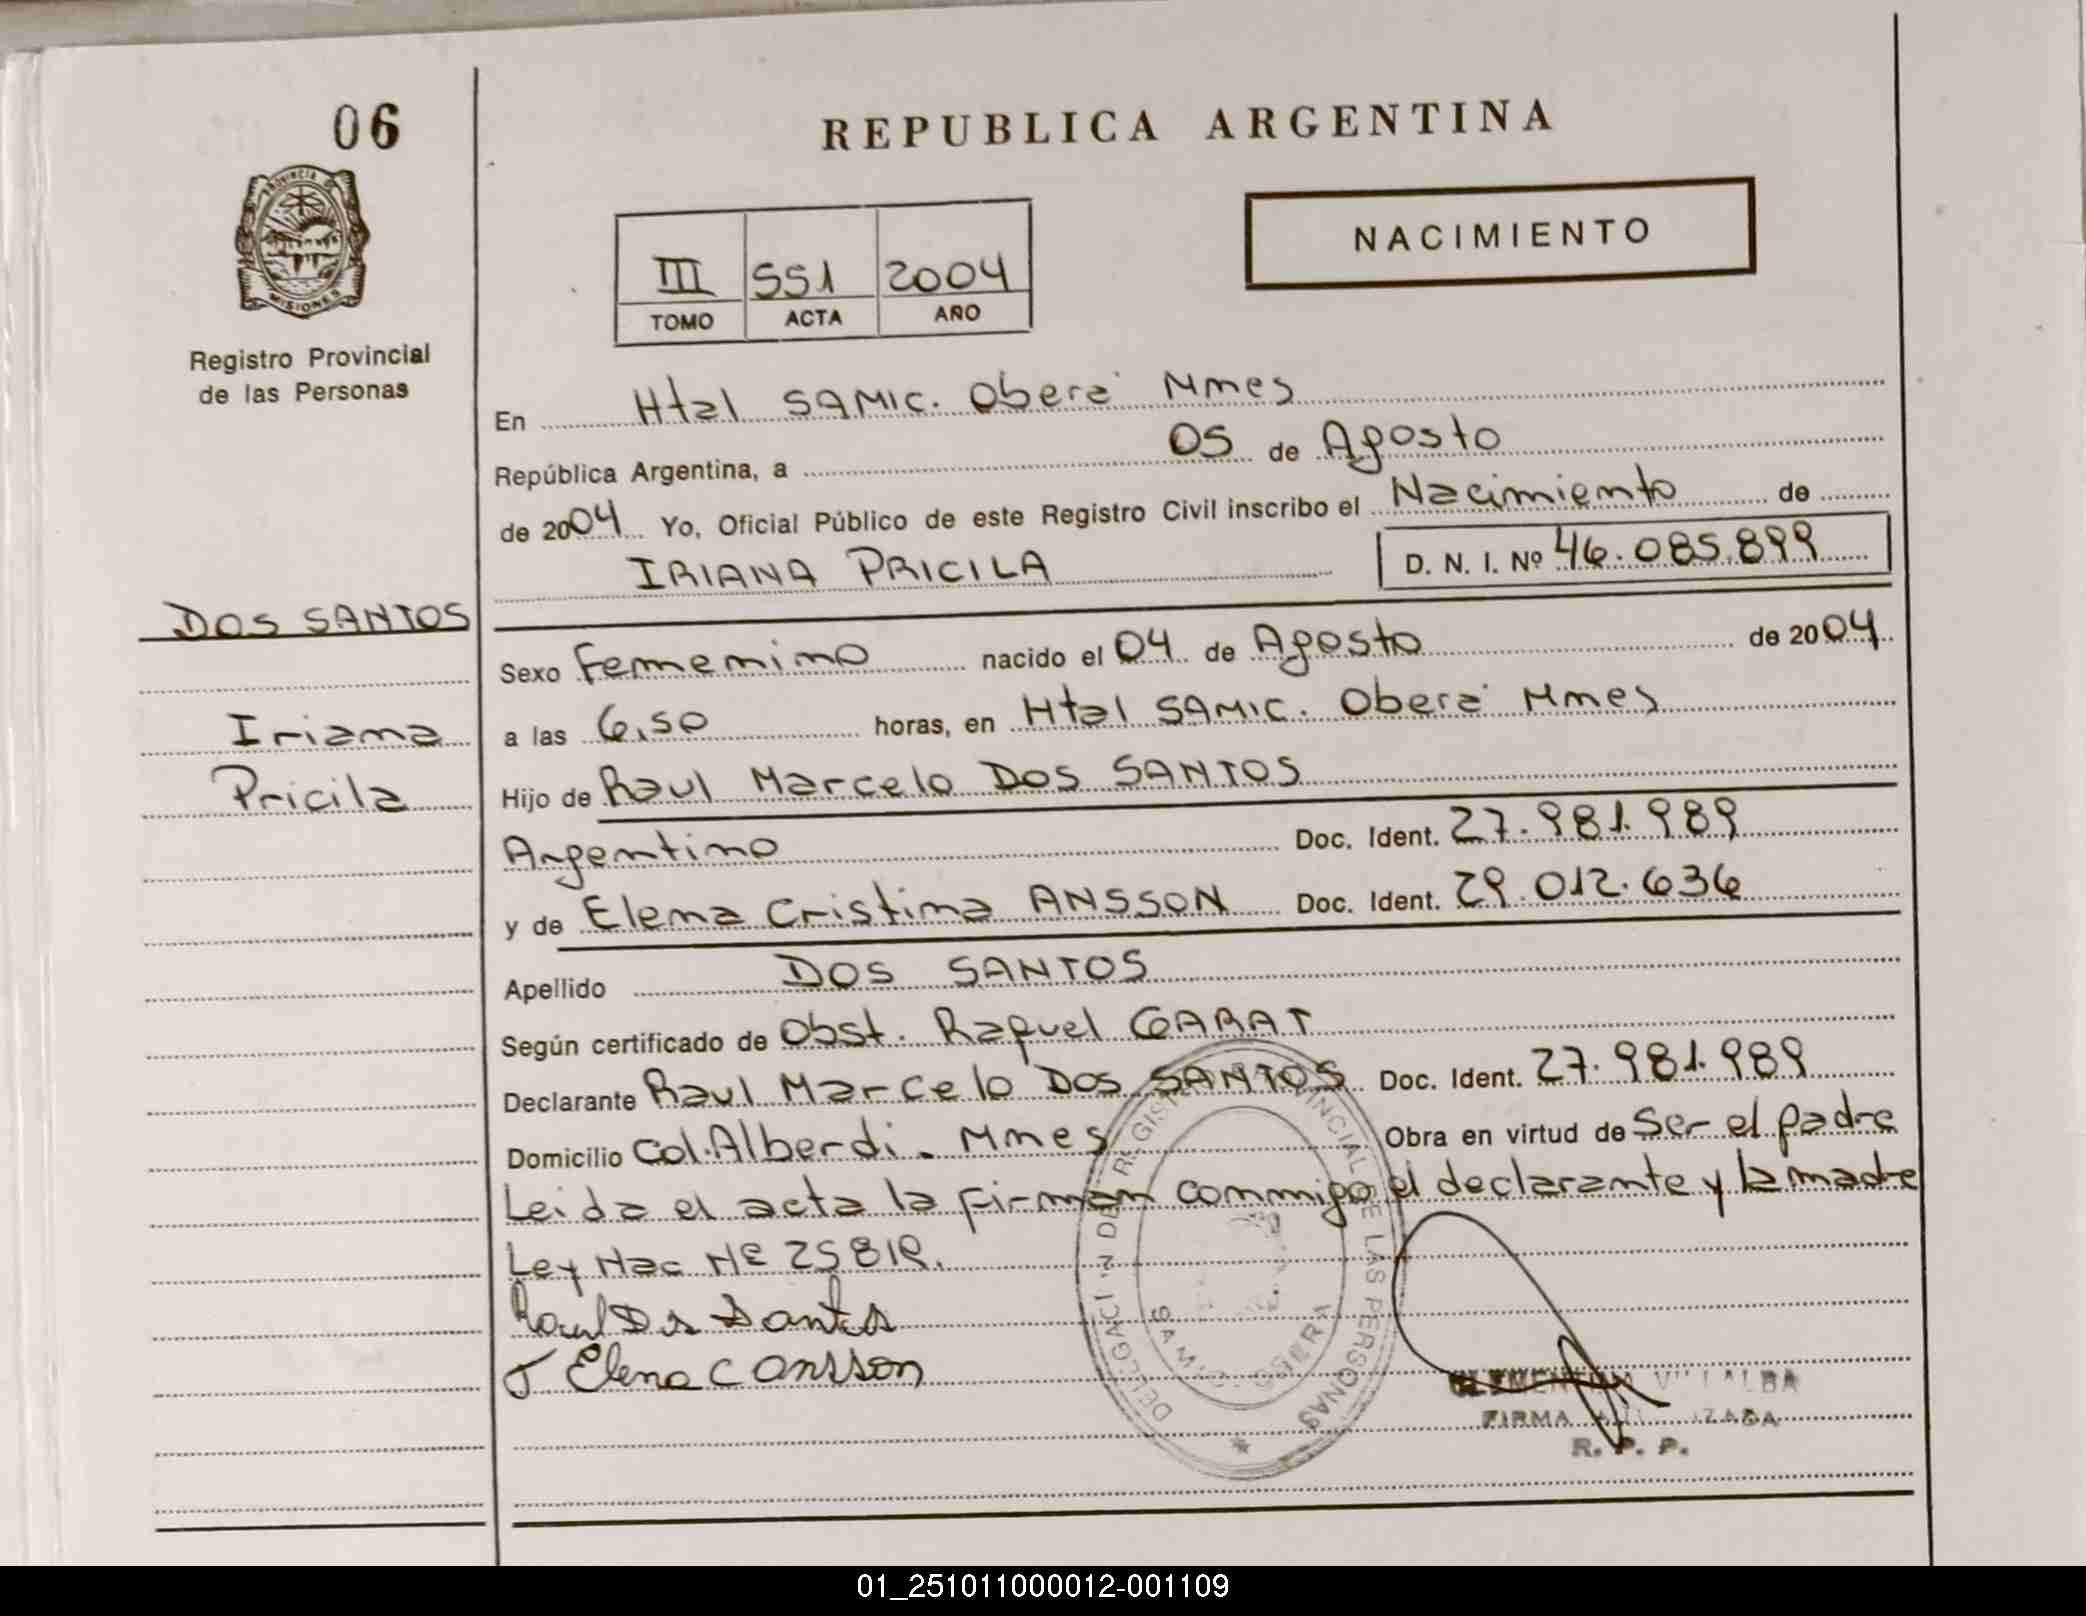 06
REPUBLICA ARGENTINA
PROVINCIA DE
MISIONES
NACIMIENTO
III 551 2004
TOMO ACTA AÑO
Registro Provincial
de las Personas
En Htal SAMIC. Oberá Mnes
República Argentina, a 05 de Agosto
de 2004 Yo, Oficial Público de este Registro Civil inscribo el Nacimiento de
IRIANA PRICILA D. N. I. Nº 46.085.899
DOS SANTOS
Sexo Femenino nacido el 04 de Agosto de 2004
Iriana
a las 6,50 horas, en Htal SAMIC. Oberá Mnes
Pricila
Hijo de Raul Marcelo DOS SANTOS
Argentino Doc. Ident. 27.981.989
y de Elena Cristina ANSSON Doc. Ident. 29.012.636
Apellido DOS SANTOS
Según certificado de Obst. Raquel GARAT
Declarante Raul Marcelo Dos SANTOS Doc. Ident. 27.981.989
Domicilio Col.Alberdi. Mnes Obra en virtud de Ser el padre
Leida el acta la firman conmigo el declarante y la madre
Ley Nac Nº 25819.
Raul Ds Santos
Elena C Ansson
DELEGACI N DEL REGISTRO PROVINCIAL DE LAS PERSONAS
VILLALBA
FIRMA
R. P. P.
01_251011000012-001109